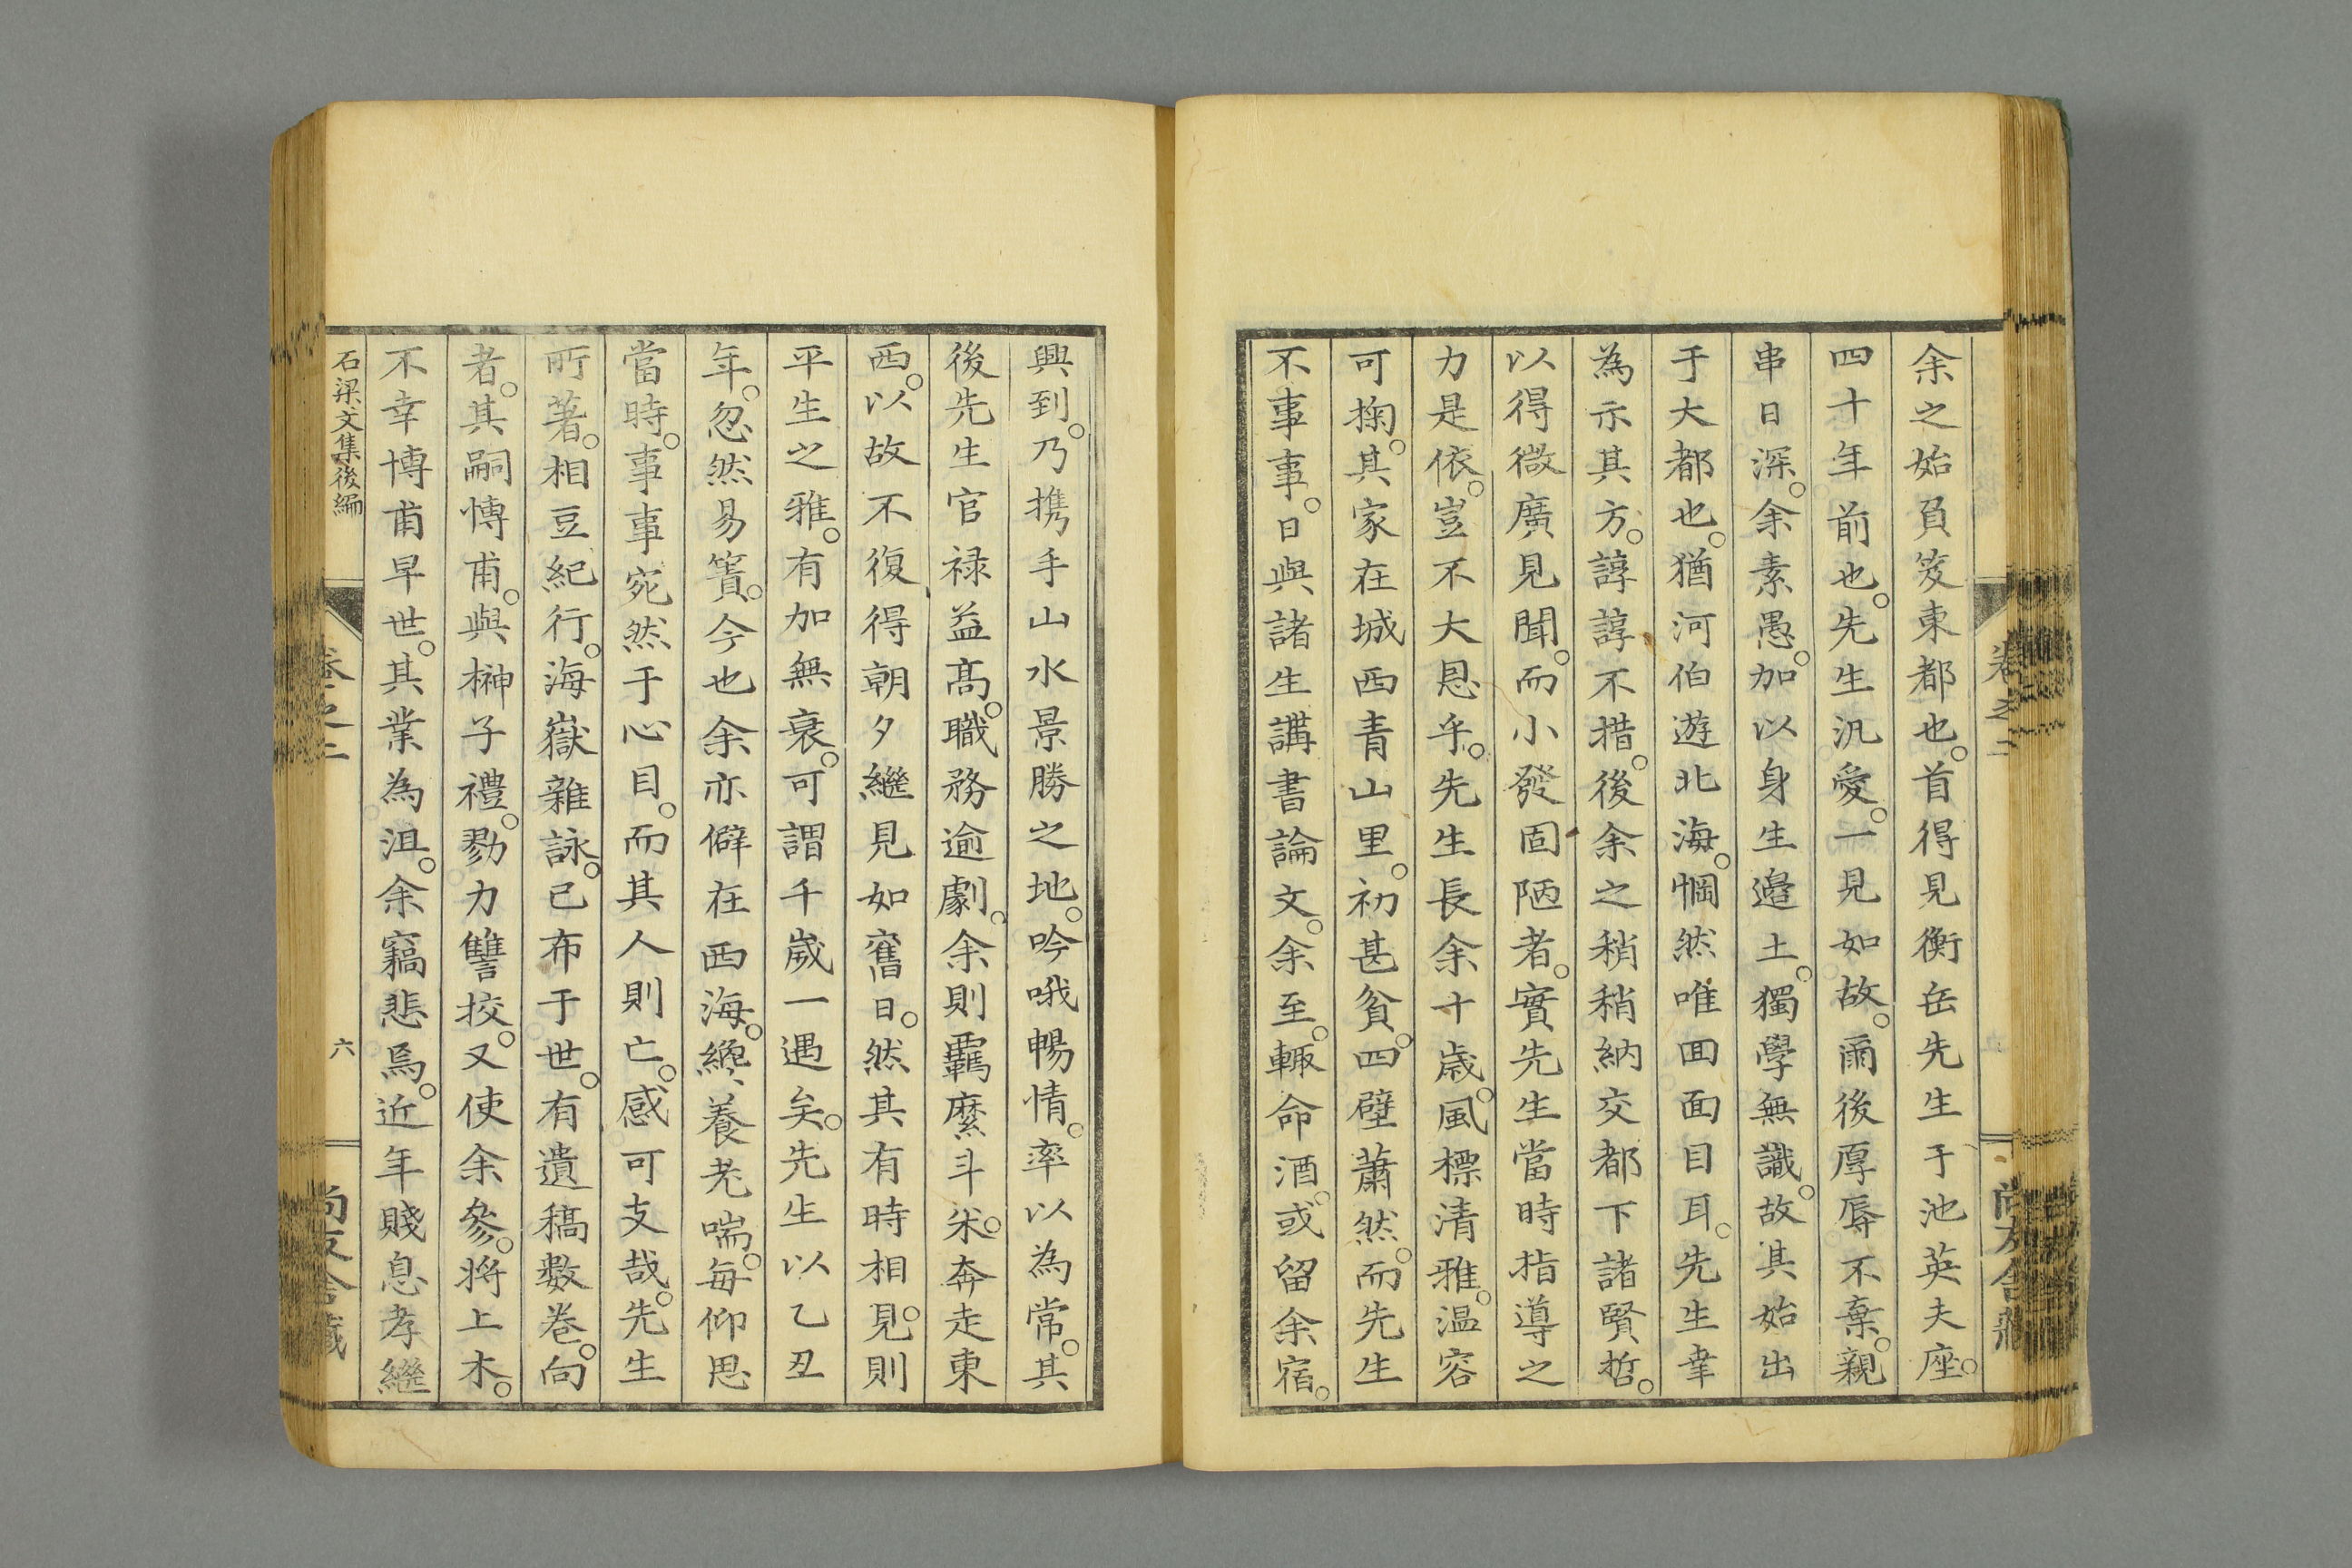 余之始負笈東都也。首得見衡岳先生于池英夫座。
四十年前也。先生汎愛。一見如故。爾後厚辱不棄。親
串日深。余素愚。加以身生邉土。獨學無識。故其始出
于大都也。猶河伯遊北海。惘然唯囬面目耳。先生幸
為示其方。諄諄不措。後余之稍稍納交都下諸賢哲。
以得微廣見聞。而小發固陋者。實先生當時指導之
力是依。豈不大恩乎。先生長余十歳。風標清雅。温容
可掬。其家在城西青山里。初甚貧。四壁蕭然。而先生
不事事。日與諸生講書論文。余至。輙命酒。或留余宿。
興到。乃携手山水景勝之地。吟哦暢情。率以為常。其
後先生官禄益髙。職務逾劇。余則覊縻斗米。奔走東
西。以故不復得朝夕繼見如舊日。然其有時相見。則
平生之雅。有加無衰。可謂千歳一遇矣。先生以乙丑
年。忽然易簀。今也余亦僻在西海。纔養老喘。每仰思
當時。事事宛然于心目。而其人則亡。感可支哉。先生
所著。相豆紀行。海嶽雜詠。已布于世。有遺稿數巻。向
者。其嗣愽甫。與榊子禮。勠力讐挍。又使余參。将上木。
不幸博甫早世。其業為沮。余竊悲焉。近年賤息孝繼
石梁文集後編
卷之二
六
尚友舎藏